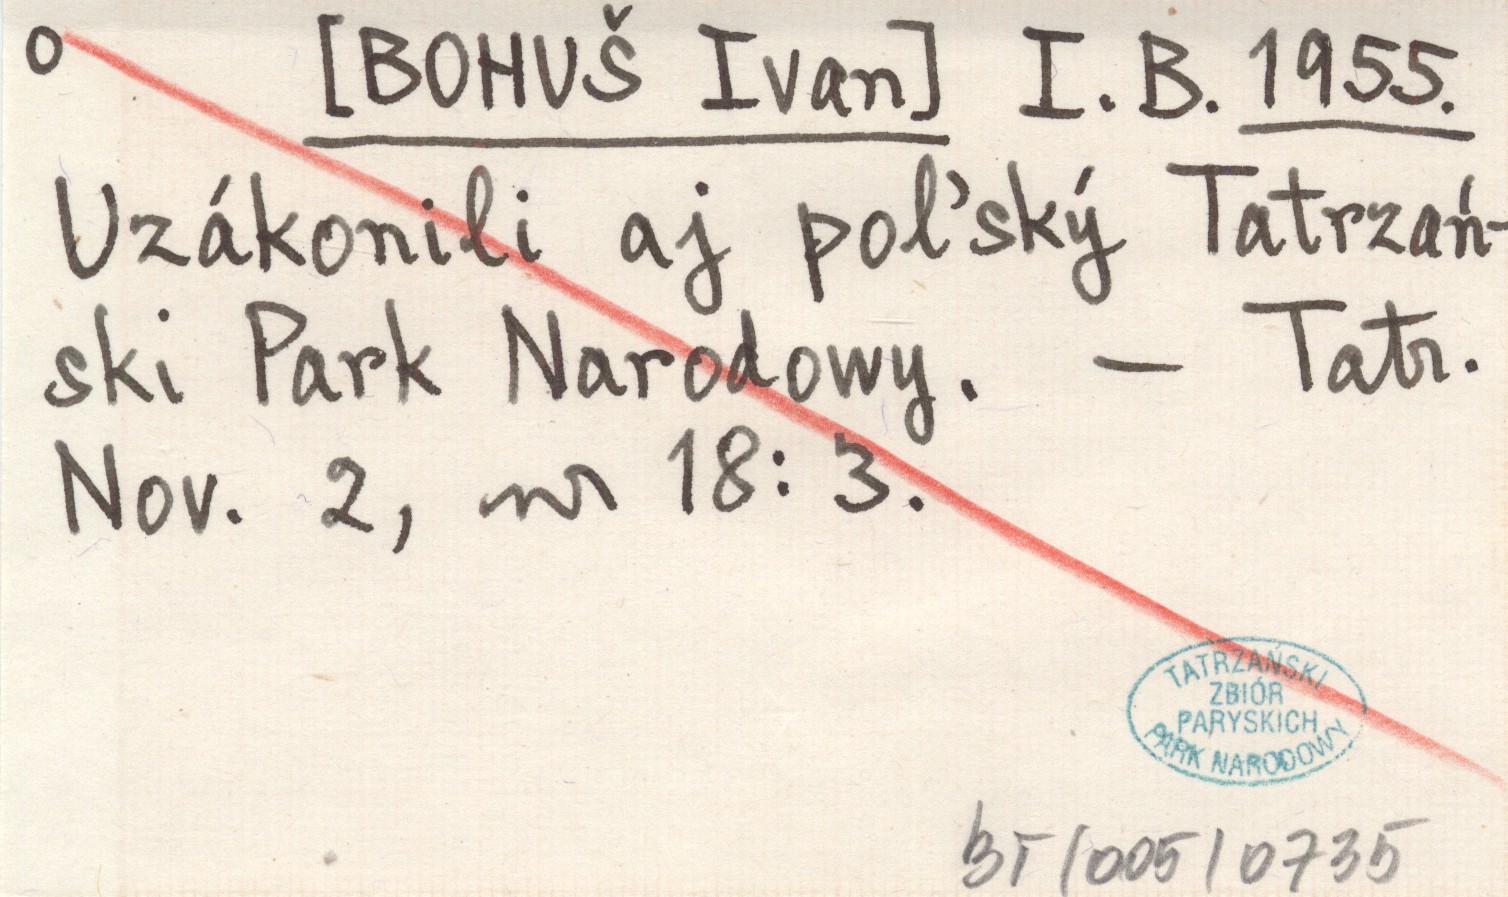 o [BOHUŠ Ivan] I. B. 1955.
Uzákonili aj poľský Tatrzań-
ski Park Narodowy. — Tatr.
Nov. 2, nr 18: 3.
TATRZAŃSKI
ZBIÓR
PARYSKICH
PARK NARODOWY
BT/005/0735